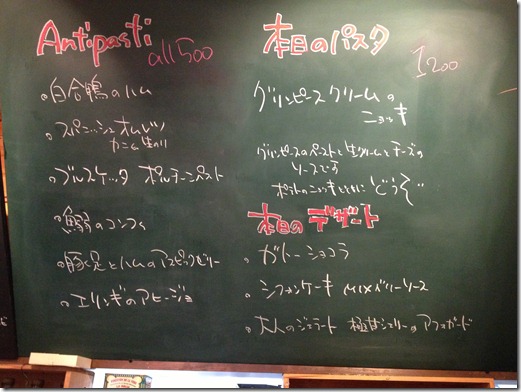 Antipasti
all 500
白合鴨のハム
スパニッシュオムレツ
カニと生のり
ブルスケッタ ポルチーニペースト
鶏のコンフィ
豚足とハムのアスピックゼリー
エリンギのアヒージョ
本日のパスタ
1200
グリンピースクリームの
ニョッキ
グリンピースのペーストと生クリームとチーズの
ソースです
ポテトのニョッキとともに どうぞ
本日のデザート
ガトーショコラ
シフォンケーキ MIXベリーソース
大人のジェラート 極甘シェリーのアフォガード